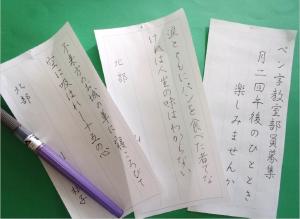 ペン字教室部員募集
月二回午後のひととき
楽しみませんか
涙とともにパンを食べた者でな
ければ人生の味はわからない
北部
不来方のお城の草に寝ころびて
空に吸はれし十五の心
北部